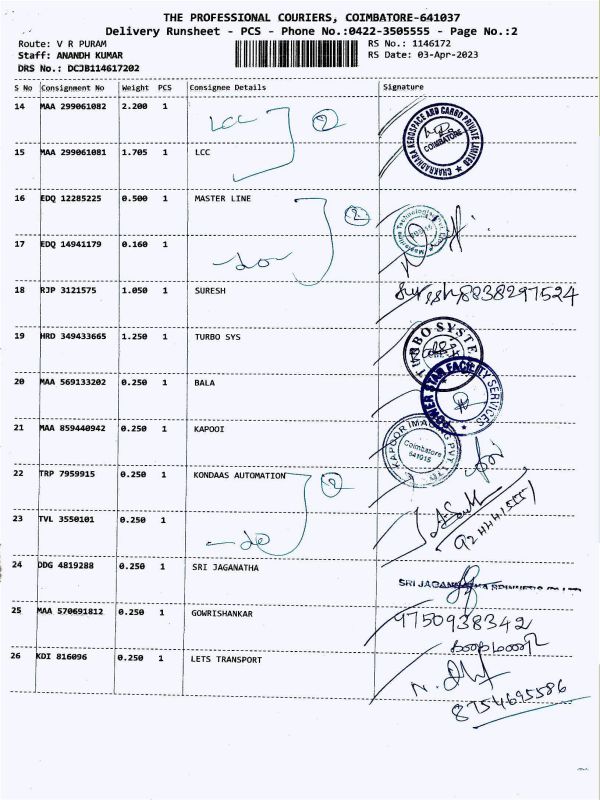 THE PROFESSIONAL COURIERS, COIMBATORE-641037
Delivery Runsheet - PCS - Phone No.:0422-3505555 - Page No.:2
Route: V R PURAM
RS No.: 1146172
Staff: ANANDH KUMAR
RS Date: 03-Apr-2023
DRS No.: DCJB114617202
S No Consignment No Weight PCS Consignee Details Signature
14 MAA 299061082 2.200 1 LCC 2
CHAKRADHARA AEROSPACE AND CARGO PRIVATE LIMITED
COIMBATORE
15 MAA 299061081 1.705 1 LCC
16 EDQ 12285225 0.500 1 MASTER LINE 2
17 EDQ 14941179 0.160 1 -do-
18 RJP 3121575 1.050 1 SURESH Suresh 8838297524
19 HRD 349433665 1.250 1 TURBO SYS TURBO SYSTE
20 MAA 569133202 0.250 1 BALA POWER STAR FACILITY SERVICES
21 MAA 859440942 0.250 1 KAPOOI KAPOOR IMAGING PVT LTD
Coimbatore
641015
22 TRP 7959915 0.250 1 KONDAAS AUTOMATION 2
23 TVL 3550101 0.250 1 -do
24 DDG 4819288 0.250 1 SRI JAGANATHA SRI JAGAN
25 MAA 570691812 0.250 1 GOWRISHANKAR 9750938342
26 KDI 816096 0.250 1 LETS TRANSPORT
8754695586